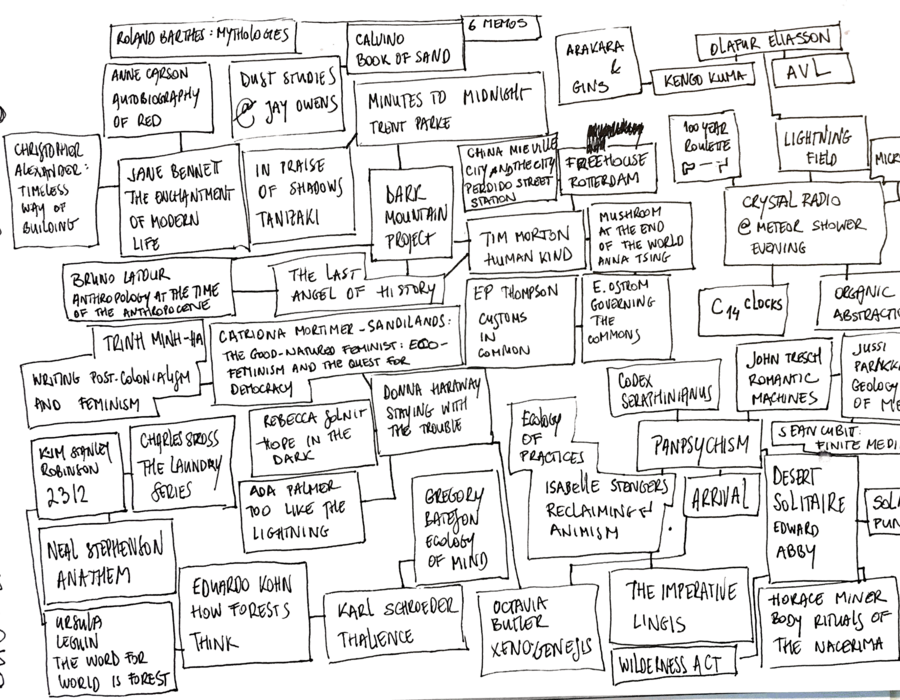 ROLAND BARTHES: MYTHOLOGIES
CALVINO
BOOK OF SAND
6 MEMOS
ARAKARA
&
GINS
OLAFUR ELIASSON
KENGO KUMA
AVL
ANNE CARSON
AUTOBIOGRAPHY
OF RED
DUST STUDIES
@ JAY OWENS
MINUTES TO MIDNIGHT
TRENT PARKE
CHRISTOPHER
ALEXANDER:
TIMELESS
WAY OF
BUILDING
JANE BENNETT
THE ENCHANTMENT
OF MODERN
LIFE
IN PRAISE
OF SHADOWS
TANIZAKI
DARK
MOUNTAIN
PROJECT
CHINA MIEVILLE
CITY AND THE CITY
PERDIDO STREET
STATION
FREEHOUSE
ROTTERDAM
100 YEAR
ROULETTE
LIGHTNING
FIELD
MICR
CRYSTAL RADIO
@ METEOR SHOWER
EVENING
TIM MORTON
HUMAN KIND
MUSHROOM
AT THE END
OF THE WORLD
ANNA TSING
BRUNO LATOUR
ANTHROPOLOGY AT THE TIME
OF THE ANTHROPOCENE
THE LAST
ANGEL OF HISTORY
EP THOMPSON
CUSTOMS
IN
COMMON
E. OSTROM
GOVERNING
THE
COMMONS
C14 CLOCKS
ORGANIC
ABSTRACTI
TRINH MINH-HA
WRITING POST-COLONIALISM
AND FEMINISM
CATRIONA MORTIMER-SANDILANDS:
THE GOOD-NATURED FEMINIST: ECO-
FEMINISM AND THE QUEST FOR
DEMOCRACY
DONNA HARAWAY
STAYING WITH
THE TROUBLE
CODEX
SERAPHINIANUS
JOHN TRESCH
ROMANTIC
MACHINES
JUSSI
PARIKKA
GEOLOGY
OF ME
KIM STANLEY
ROBINSON
2312
CHARLES STROSS
THE LAUNDRY
SERIES
REBECCA SOLNIT
HOPE IN THE
DARK
ECOLOGY
OF
PRACTICES
PANPSYCHISM
SEAN CUBIT:
FINITE MEDI
ADA PALMER
TOO LIKE THE
LIGHTNING
GREGORY
BATESON
ECOLOGY
OF MIND
ISABELLE STENGERS
RECLAIMING
ANIMISM
ARRIVAL
DESERT
SOLITAIRE
EDWARD
ABBY
SOL
PUN
NEAL STEPHENSON
ANATHEM
EDUARDO KOHN
HOW FORESTS
THINK
KARL SCHROEDER
THALIENCE
OCTAVIA
BUTLER
XENOGENEJIS
THE IMPERATIVE
LINGIS
HORACE MINER
BODY RITUALS OF
THE NACERIMA
URSULA
LEGUIN
THE WORD FOR
WORLD IS FOREST
WILDERNESS ACT